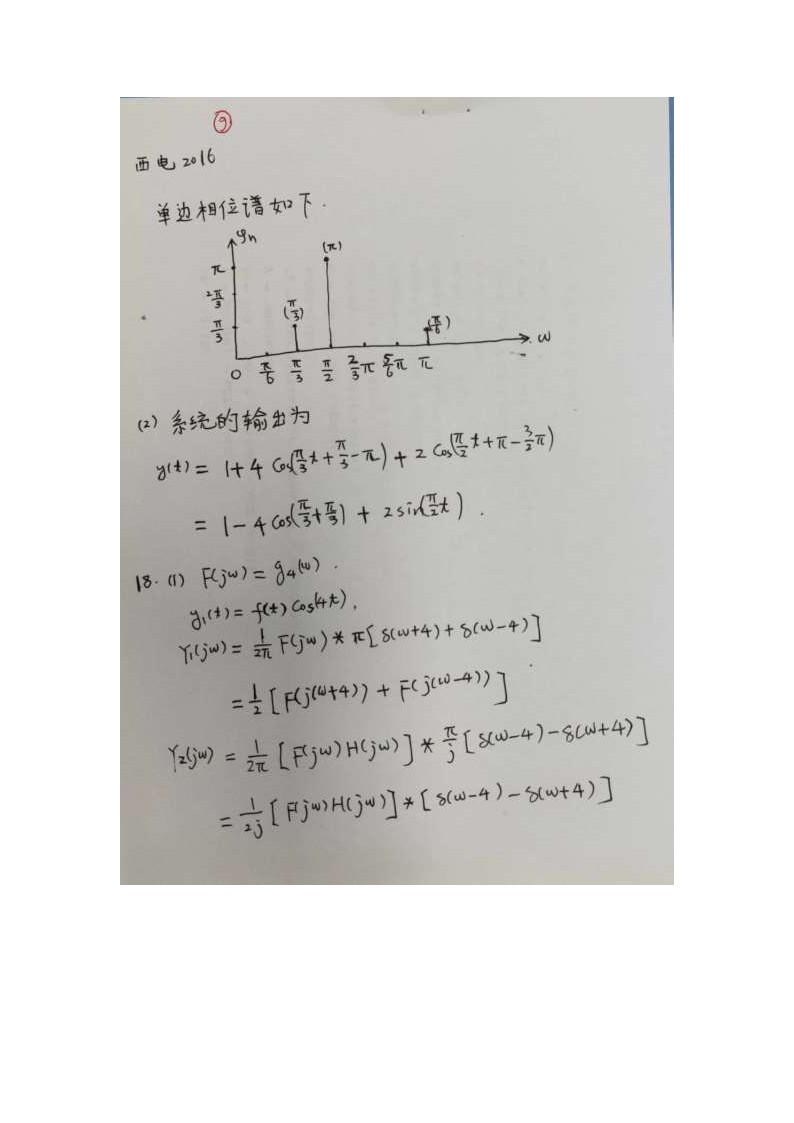 ⑨
西电2016
单边相位谱如下.
φn
(π)
π
2π/3
(π/3)
π/3
(π/6)
ω
0 π/6 π/3 π/2 2/3π 5/6π π
(2) 系统的输出为
y(t) = 1+4 cos(π/3 t + π/3 - π) + 2 cos(π/2 t + π - 3/2 π)
= 1-4 cos(π/3 + π/3) + 2 sin(π/2 t) .
18. (1) F(jω) = g₄(ω) .
y₁(t) = f(t) cos(4t),
Y₁(jω) = 1/2π F(jω) * π[δ(ω+4) + δ(ω-4)]
= 1/2 [F(j(ω+4)) + F(j(ω-4))]
Y₂(jω) = 1/2π [F(jω)H(jω)] * π/j [δ(ω-4) - δ(ω+4)]
= 1/2j [F(jω)H(jω)] * [δ(ω-4) - δ(ω+4)]